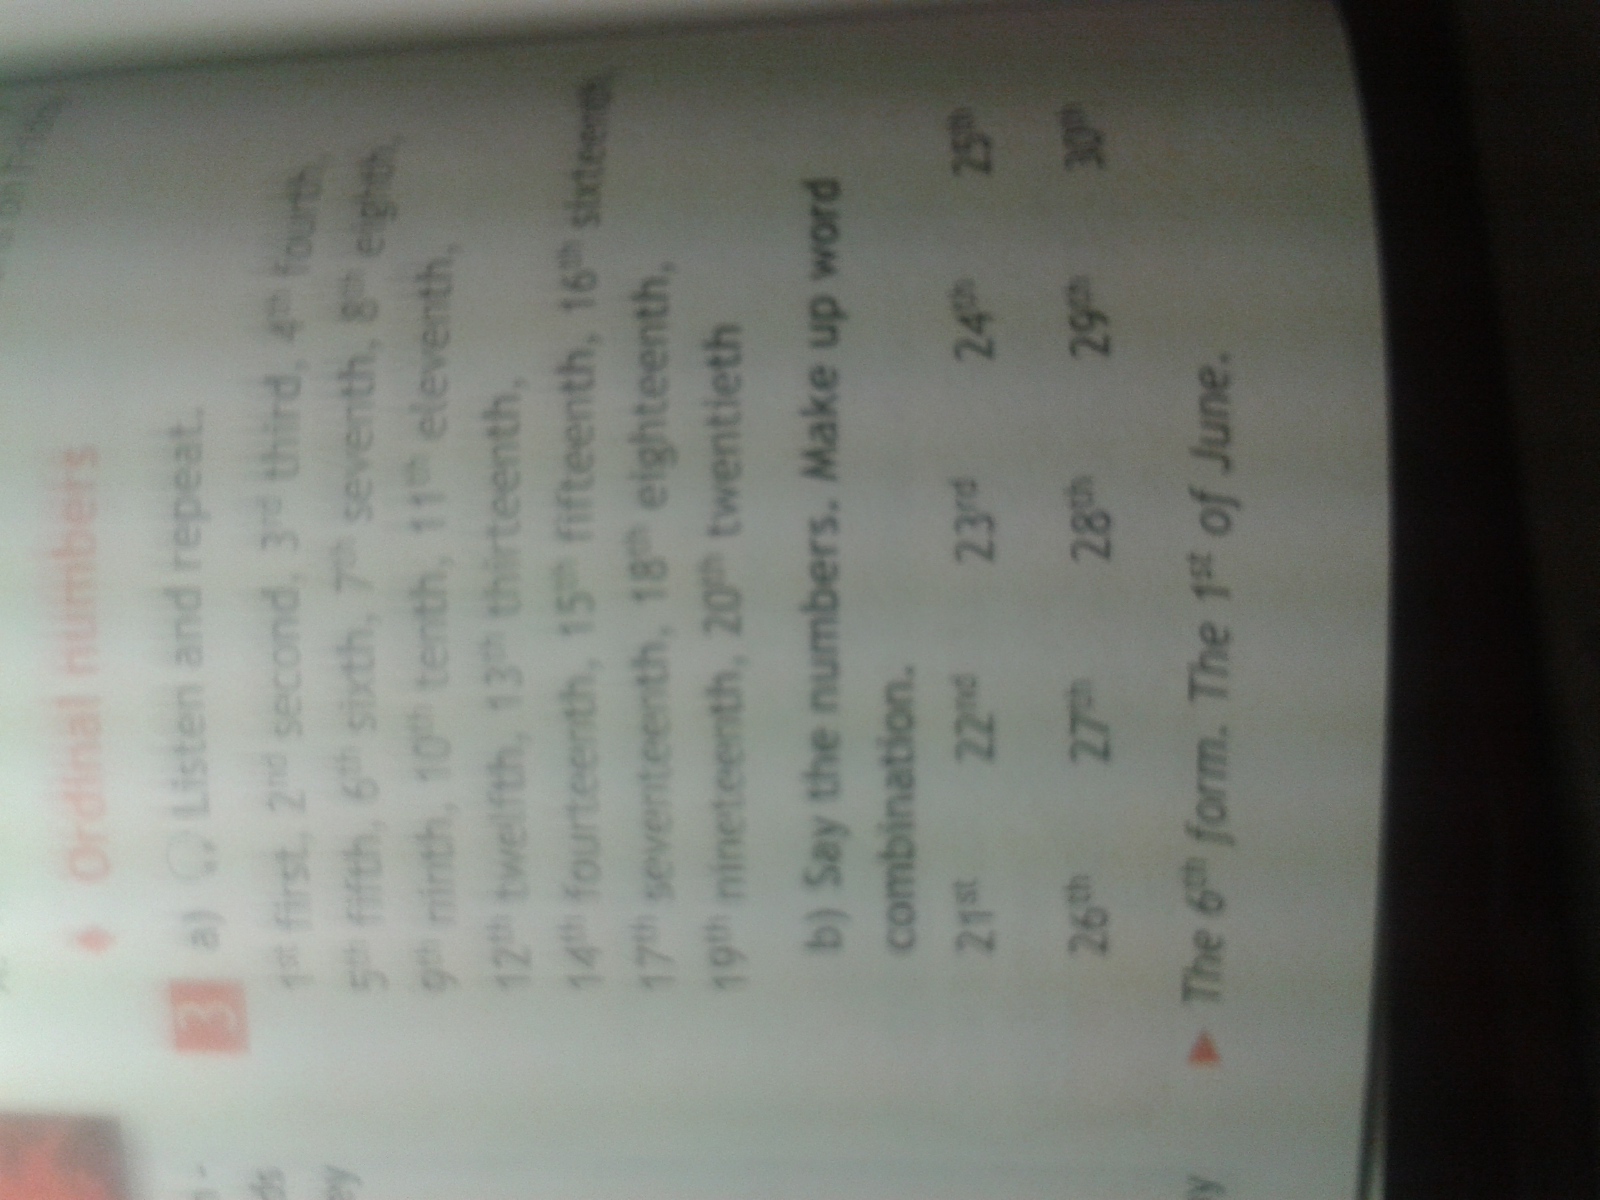 Ordinal numbers
3 a) Listen and repeat.
1st first, 2nd second, 3rd third, 4th fourth,
5th fifth, 6th sixth, 7th seventh, 8th eighth,
9th ninth, 10th tenth, 11th eleventh,
12th twelfth, 13th thirteenth,
14th fourteenth, 15th fifteenth, 16th sixteenth,
17th seventeenth, 18th eighteenth,
19th nineteenth, 20th twentieth
b) Say the numbers. Make up word
combination.
21st 22nd 23rd 24th 25th
26th 27th 28th 29th 30th
The 6th form. The 1st of June.